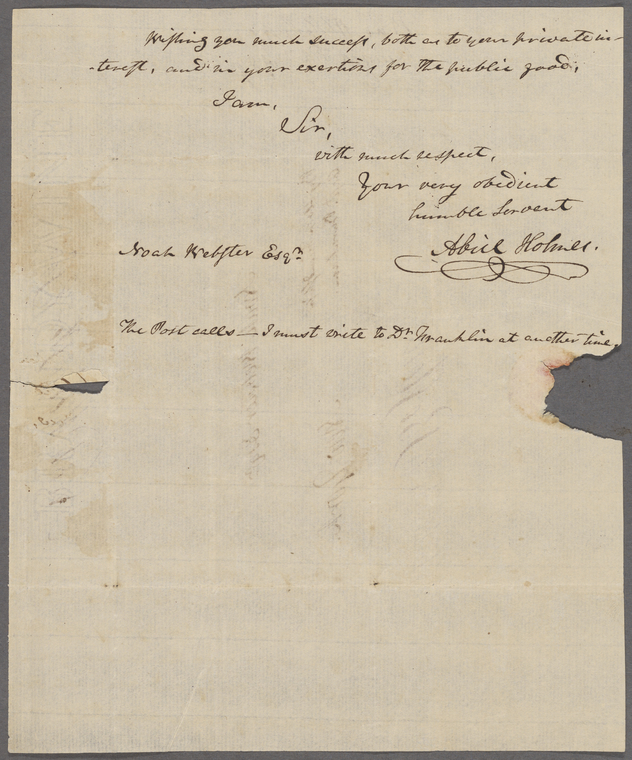 Wishing you much success, both as to your private in-
-terest, and in your exertions for the public good,
I am,
Sir,
with much respect,
Your very obedient
humble Servant
Abiel Holmes.
Noah Webster Esqr.
The Post calls — I must write to Dr. Franklin at another time.